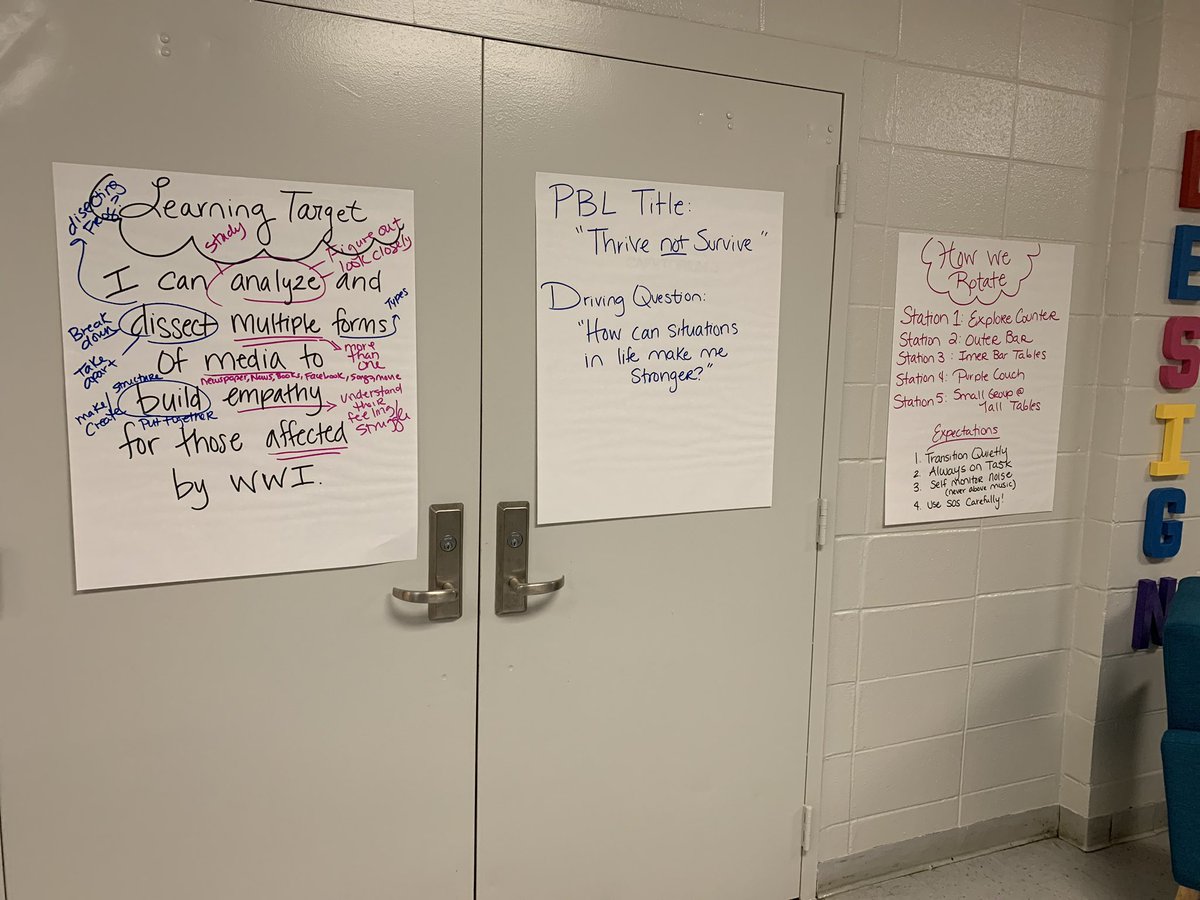 Learning Target
disecting
Frog?
study
Figure out
look closely
I can analyze and
dissect multiple forms
Types
Break
down
Take
apart
more
than
one
of media to
newspaper, News, Books, Facebook, Songs, movie
structure
make/
Create
build empathy
Put together
understand
their
feeling/
struggle
for those affected
by WWI.
PBL Title:
"Thrive not Survive"
Driving Question:
"How can situations
in life make me
Stronger?"
How we
Rotate
Station 1: Explore Counter
Station 2: Outer Bar
Station 3: Inner Bar Tables
Station 4: Purple Couch
Station 5: Small Group @
Tall Tables
Expectations
1. Transition Quietly
2. Always on Task
3. Self monitor noise
(never above music)
4. Use SOS Carefully!
DESIGN